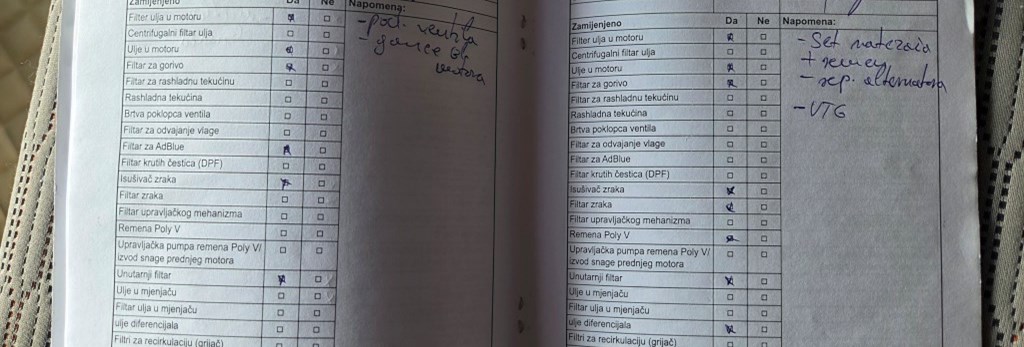 Zamijenjeno Da Ne Napomena:
Filter ulja u motoru
Centrifugalni filtar ulja
Ulje u motoru
Filtar za gorivo
Filtar za rashladnu tekućinu
Rashladna tekućina
Brtva poklopca ventila
Filtar za odvajanje vlage
Filtar za AdBlue
Filtar krutih čestica (DPF)
Isušivač zraka
Filtar zraka
Filtar upravljačkog mehanizma
Remena Poly V
Upravljačka pumpa remena Poly V/
izvod snage prednjeg motora
Unutarnji filtar
Ulje u mjenjaču
Filtar ulja u mjenjaču
ulje diferencijala
Filtri za recirkulaciju (grijač)
- pod. ventila
Zamijenjeno Da Ne Napomena:
Filter ulja u motoru
Centrifugalni filtar ulja
Ulje u motoru
Filtar za gorivo
Filtar za rashladnu tekućinu
Rashladna tekućina
Brtva poklopca ventila
Filtar za odvajanje vlage
Filtar za AdBlue
Filtar krutih čestica (DPF)
Isušivač zraka
Filtar zraka
Filtar upravljačkog mehanizma
Remena Poly V
Upravljačka pumpa remena Poly V/
izvod snage prednjeg motora
Unutarnji filtar
Ulje u mjenjaču
Filtar ulja u mjenjaču
ulje diferencijala
Filtri za recirkulaciju (grijač)
- Set natezača
+ remen
- rep. alternatora
- VTG